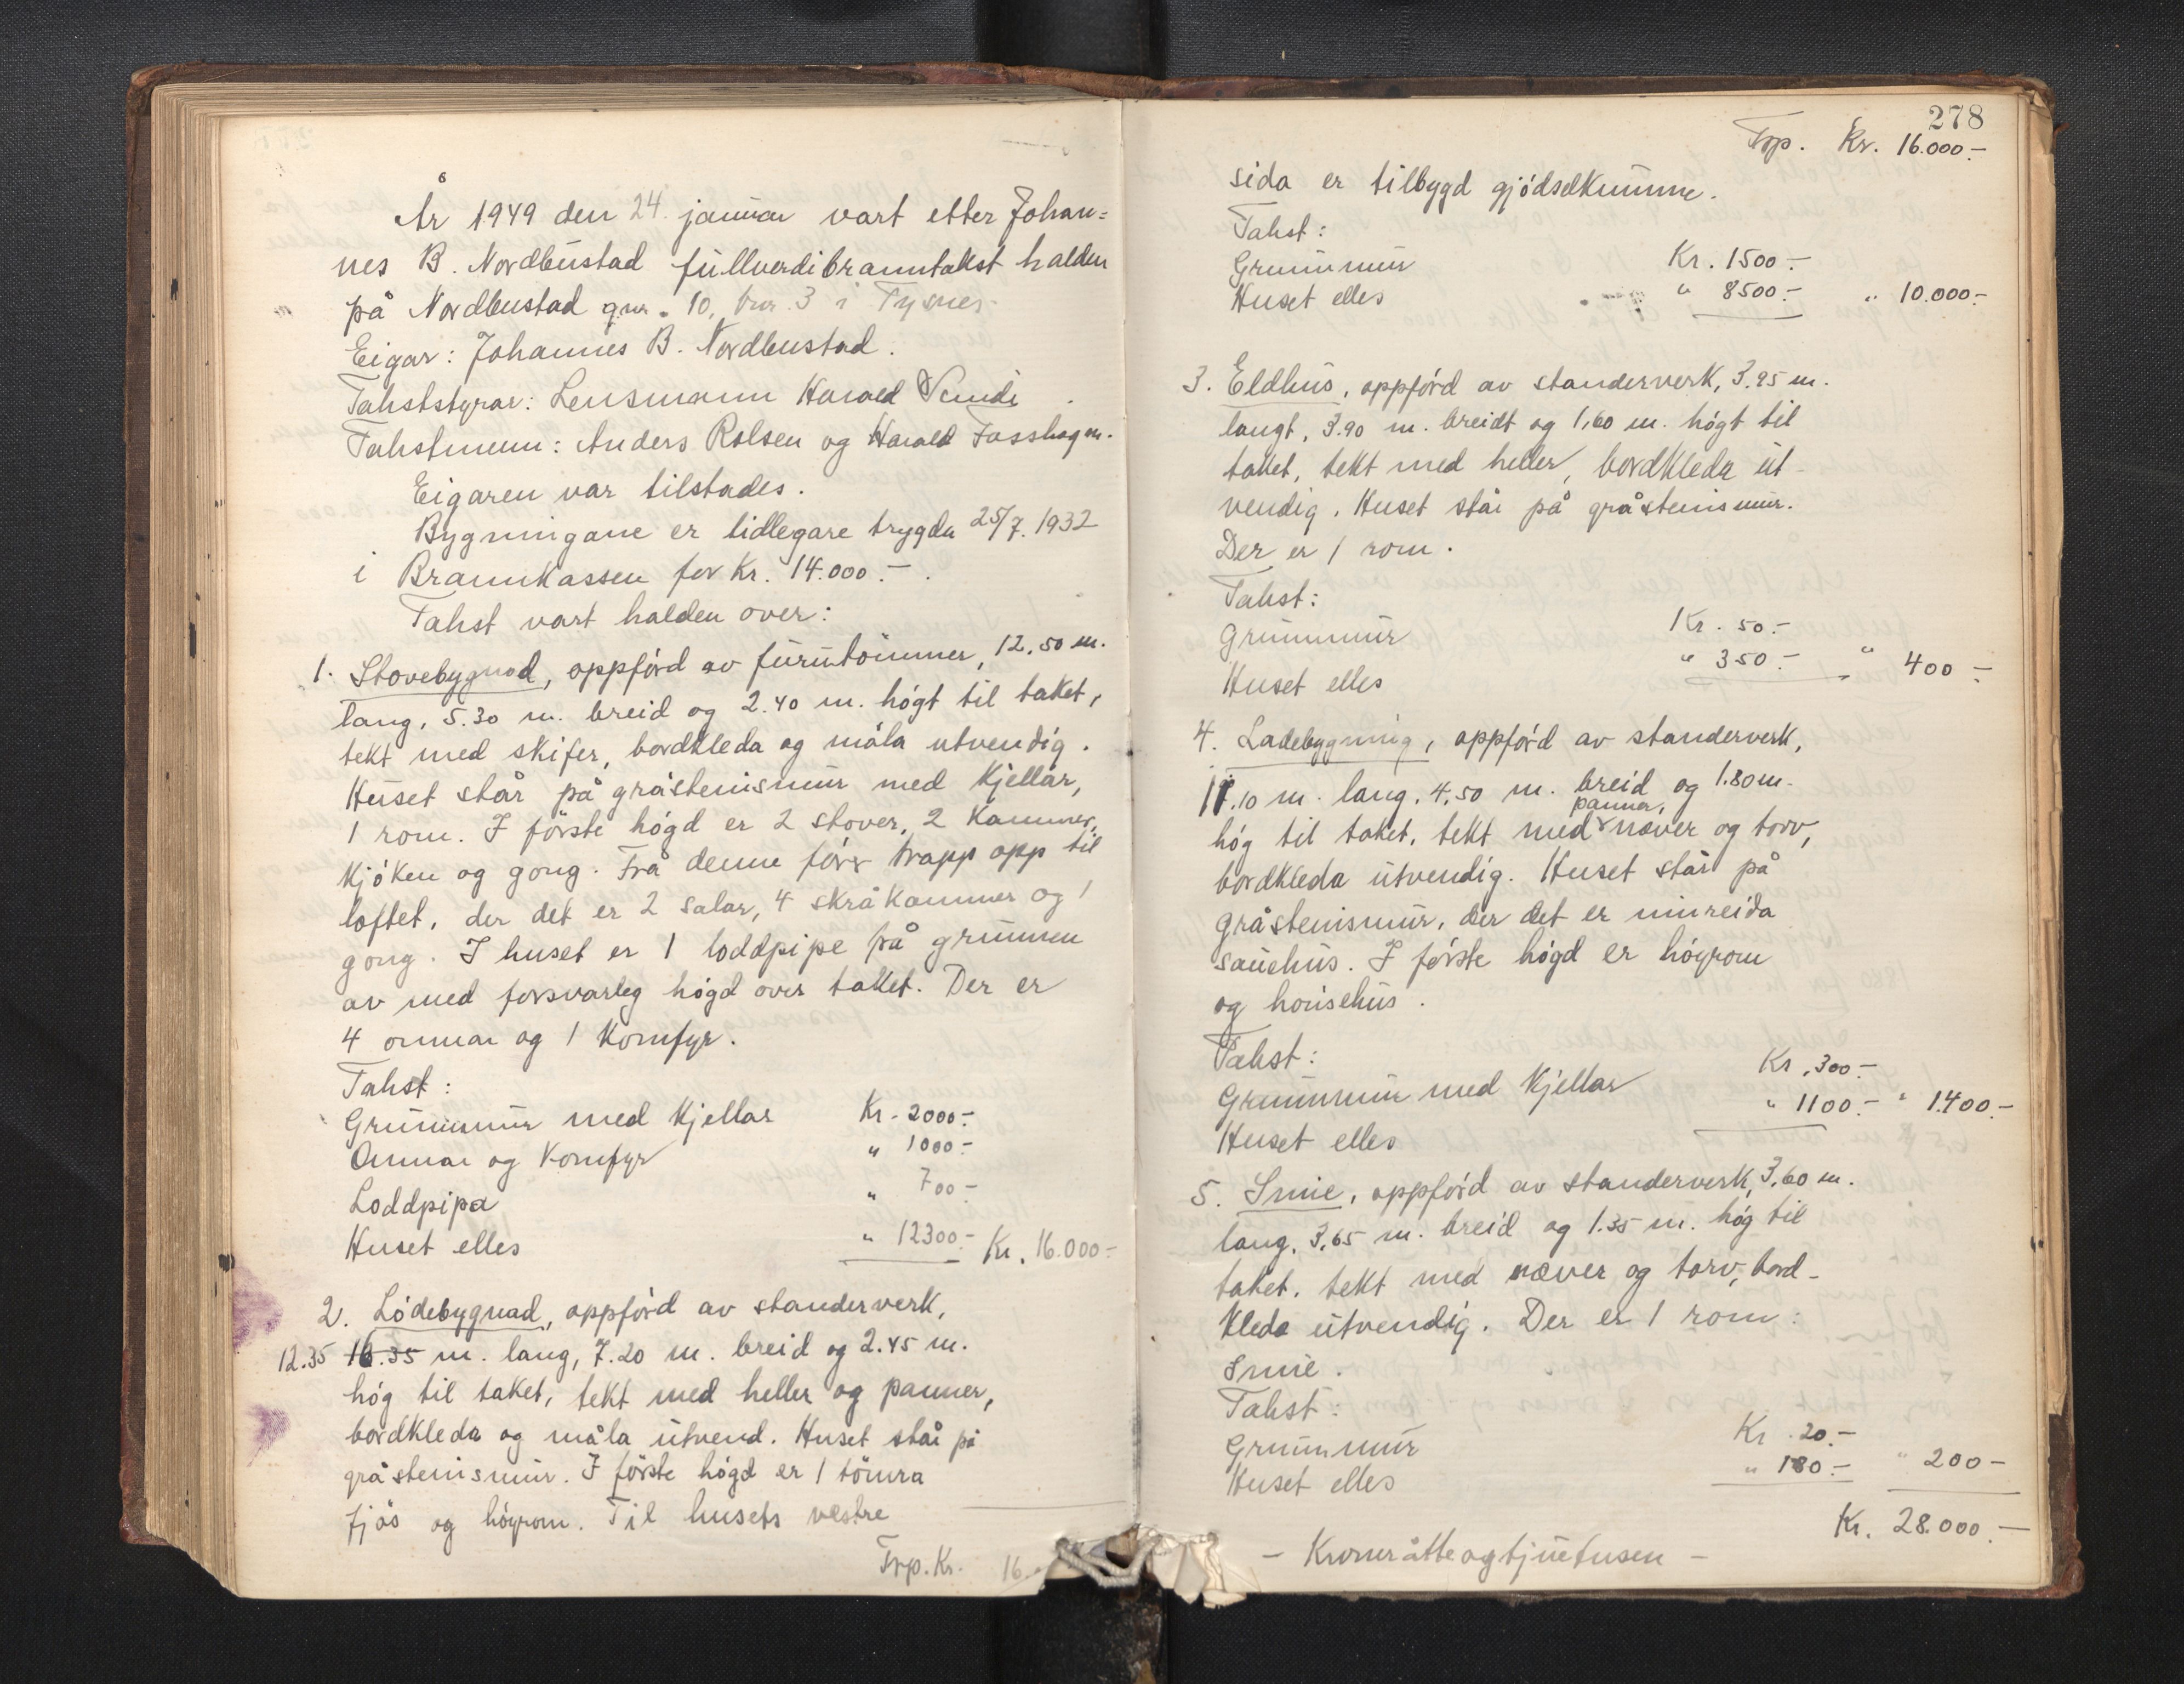 År 1949 den 24. januar vart etter Johan=
nes B. Nordbustad fullverdibranntakst halden
på Nordbustad gnr. 10, bnr. 3 i Tysnes.
Eigar: Johannes B. Nordbustad.
Takststyrar: Lensmann Harald
Takstmenn: Anders Rolsen og Harald
Eigaren var tilstades.
Bygningane er tidlegare trygda 25/7. 1932
i Brannkassen for Kr. 14.000.-.
Takst vart halden over:
1. Stovebygnad, oppförd av furutömmer, 12.50 m.
lang, 5.30 m. breid og 2.40 m. högt til taket,
tekt med skifer, bordkleda og måla utvendig.
Huset står på gråsteinsmur med kjellar,
1 rom. I förste högd er 2 stover, 2 kammer,
kjöken og gong. Frå denne förer trapp opp til
loftet, der det er 2 salar, 4 skråkammer og 1
gong. I huset er 1 loddpipe på grunnen
av med forsvarleg högd over taket. Der er
4 omnar og 1 komfyr.
Takst:
Grunnmur med kjellar Kr. 2000.-
Omnar og komfyr " 1000.-
Loddpipa " 700.-
Huset elles " 12300.- Kr. 16.000.-
2. Lödebygnad, oppförd av standerverk,
12.35 16.35 m. lang, 7.20 m. breid og 2.45 m.
hög til taket, tekt med heller og panner,
bordkleda og måla utvend. Huset står på
gråsteinsmur. I förste högd er 1 tömra
fjös og höyrom. Til husets vestre
Trp. Kr. 16.
278
Trp. Kr. 16.000.-
sida er tilbygd gjödselkumme.
Takst:
Grunnmur Kr. 1500.-
Huset elles " 8500.- " 10.000.-
3. Eldhus, oppförd av standerverk, 3.95 m.
langt, 3.90 m. breidt og 1,60 m. högt til
taket, tekt med heller, bordkleda ut-
vendig. Huset står på gråsteinsmur.
Der er 1 rom.
Takst:
Grunnmur Kr. 50.-
Huset elles " 350.- " 400.-
4. Ladebygning, oppförd av standerverk,
11.10 m. lang, 4,50 m. breid og 1.80 m.
panner,
hög til taket, tekt med næver og torv,
bordkleda utvendig. Huset står på
gråsteinsmur, der det er innreida
sauehus. I förste högd er höyrom
og hönsehus.
Takst:
Grunnmur med kjellar Kr. 300.-
Huset elles " 1100.- " 1.400.-
5. Smie, oppförd av standerverk, 3,60 m.
lang, 3,65 m. breid og 1.35 m. hög til
taket, tekt med næver og torv, bord-
kleda utvendig. Der er 1 rom:
Smie.
Takst:
Grunnmur Kr. 20.-
Huset elles " 180.- " 200.-
Kr. 28.000.-
- Kroner åtteogtjuetusen -